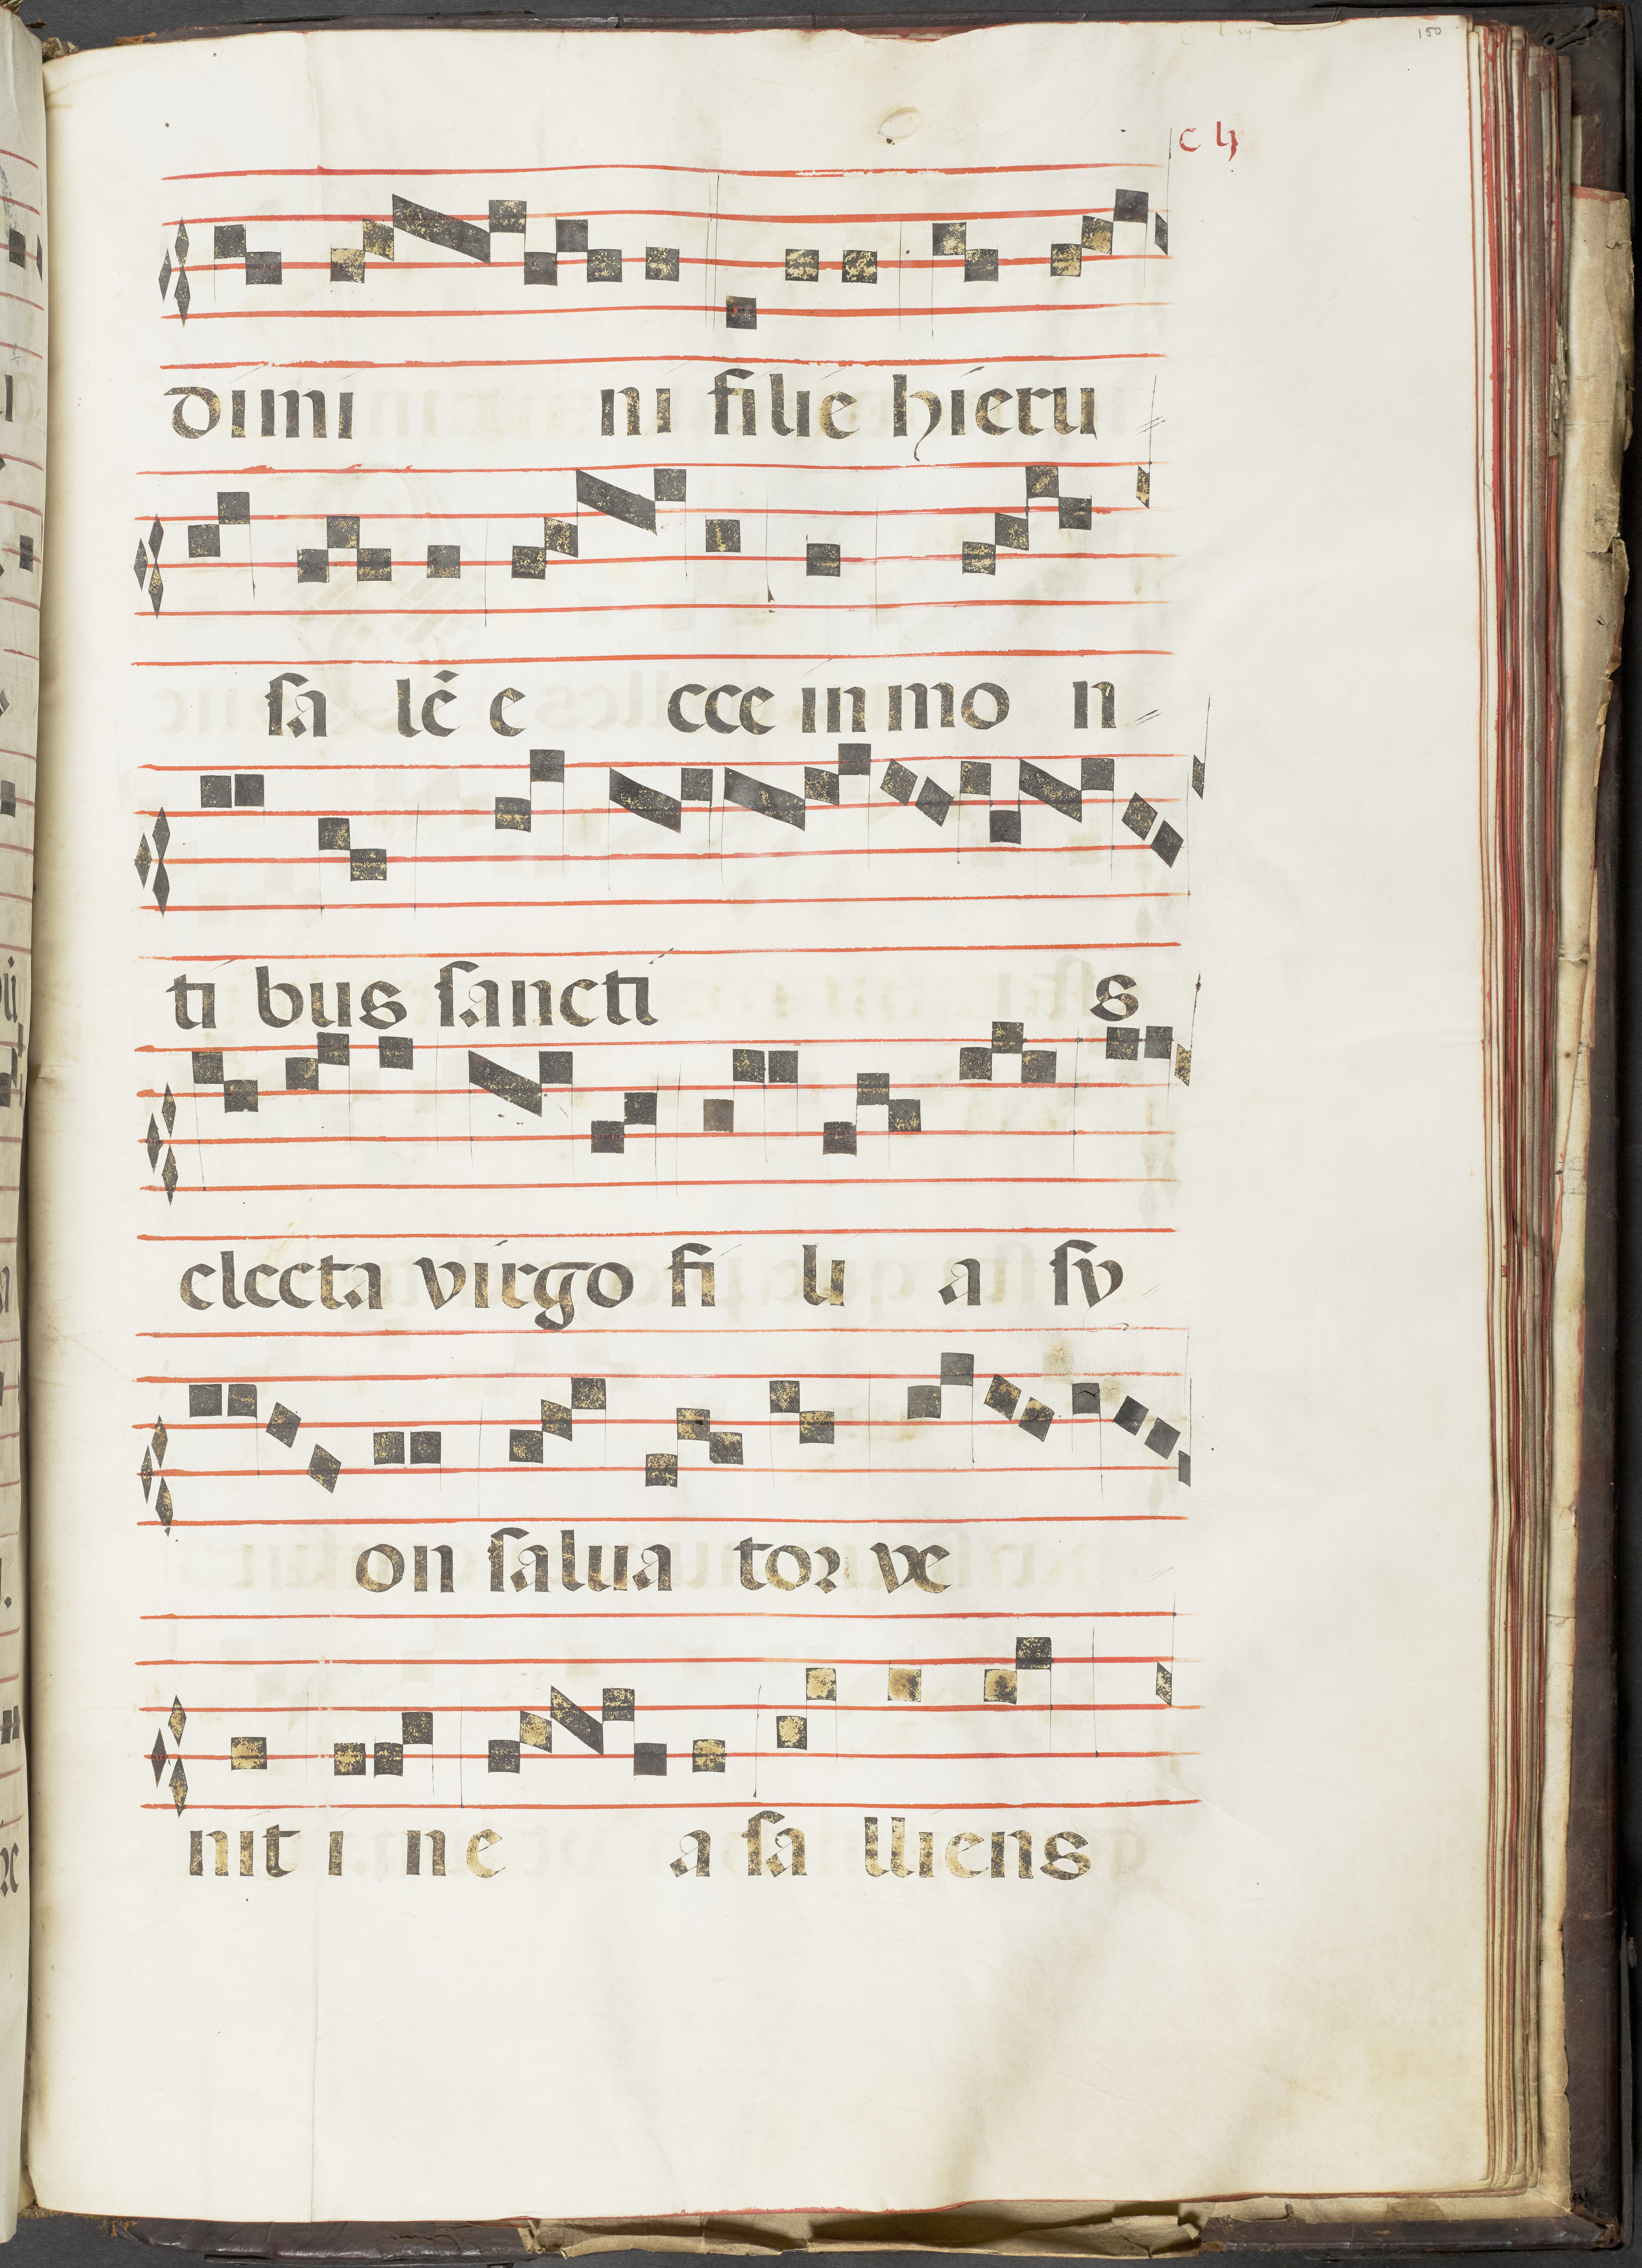 150
c lη
dimi ni filie hieru
sa lē e cce in mo n
ti bus sancti s
electa virgo fi li a sy
on salua tor ve
nit i ne a sa lliens